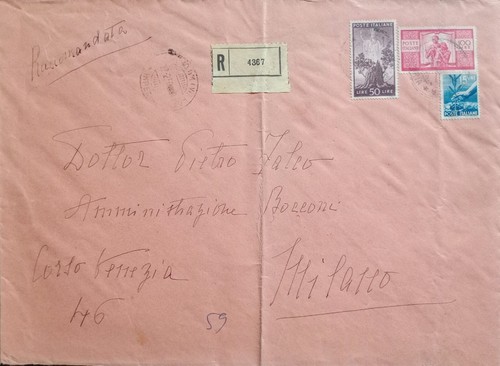 Raccomandata
R 4367
POSTE ITALIANE
LIRE 50 LIRE
POSTE ITALIANE 100
POSTE ITALIANE
Dottor Pietro Falco
Amministrazione Bocconi
Corso Venezia
46
Milano
59